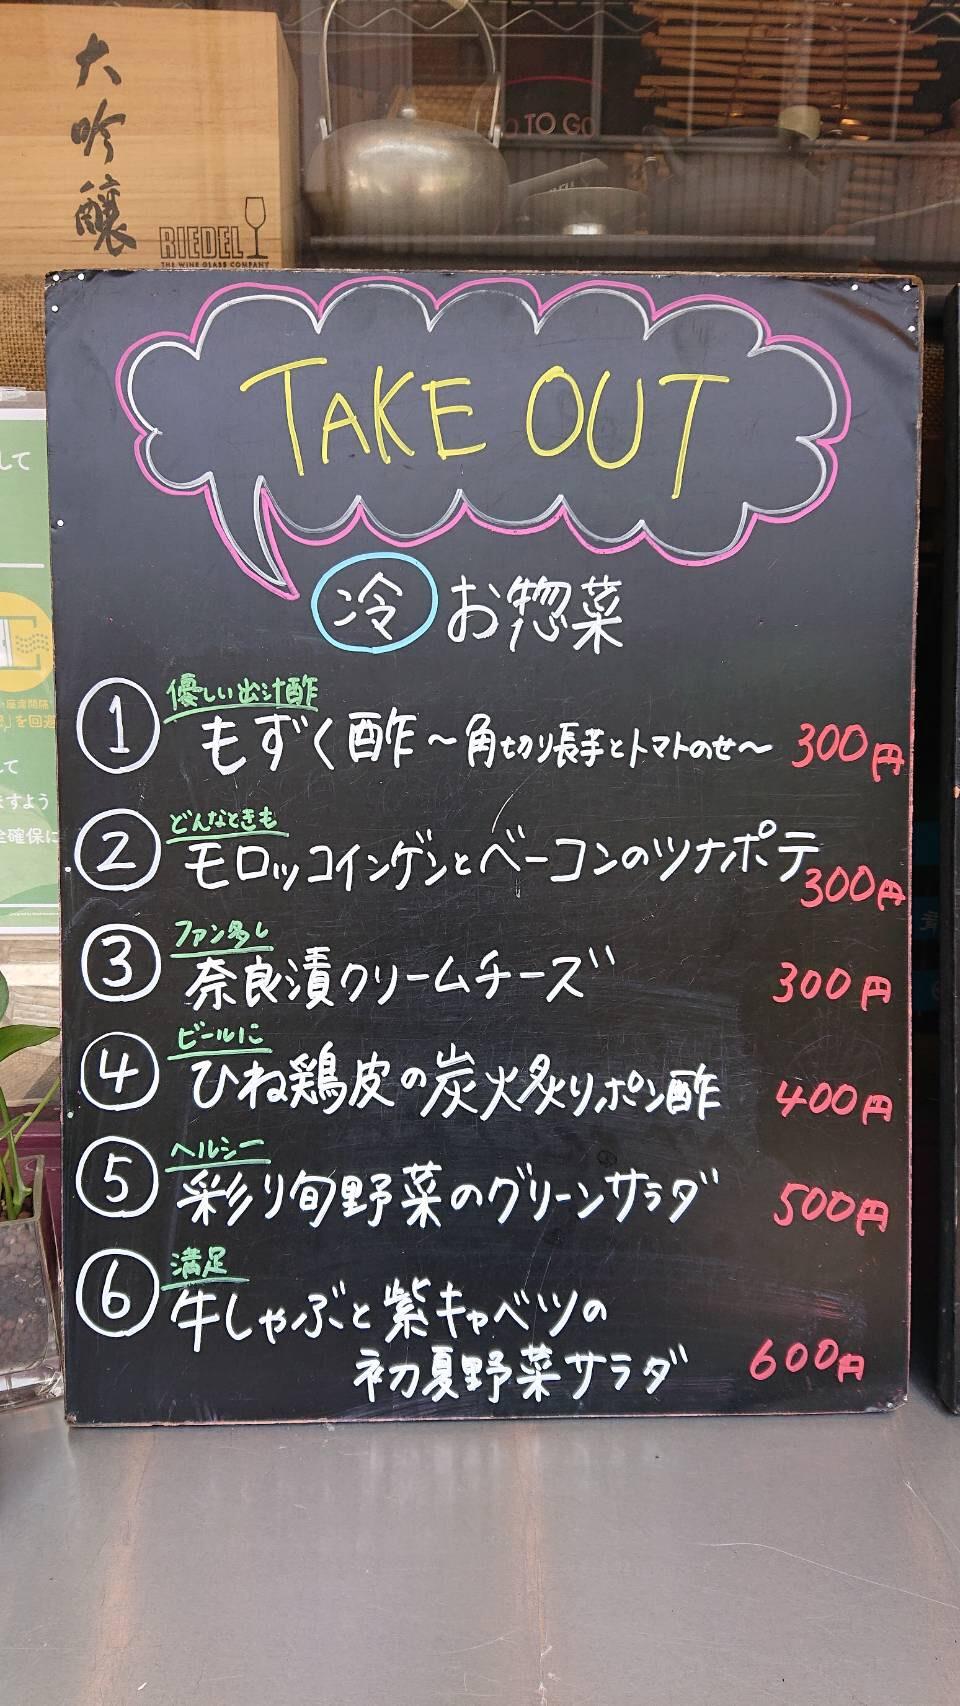 大吟醸
RIEDEL
THE WINE GLASS COMPANY
TO GO
TAKE OUT
冷 お惣菜
① 優しい出汁酢
もずく酢～角切り長芋とトマトのせ～ 300円
② どんなときも
モロッコインゲンとベーコンのツナポテ 300円
③ ファン多し
奈良漬クリームチーズ 300円
④ ビールに
ひね鶏皮の炭火炙りポン酢 400円
⑤ ヘルシー
彩り旬野菜のグリーンサラダ 500円
⑥ 満足
牛しゃぶと紫キャベツの
初夏野菜サラダ 600円
して
座席間隔
を回避
して
ますよう
確保に